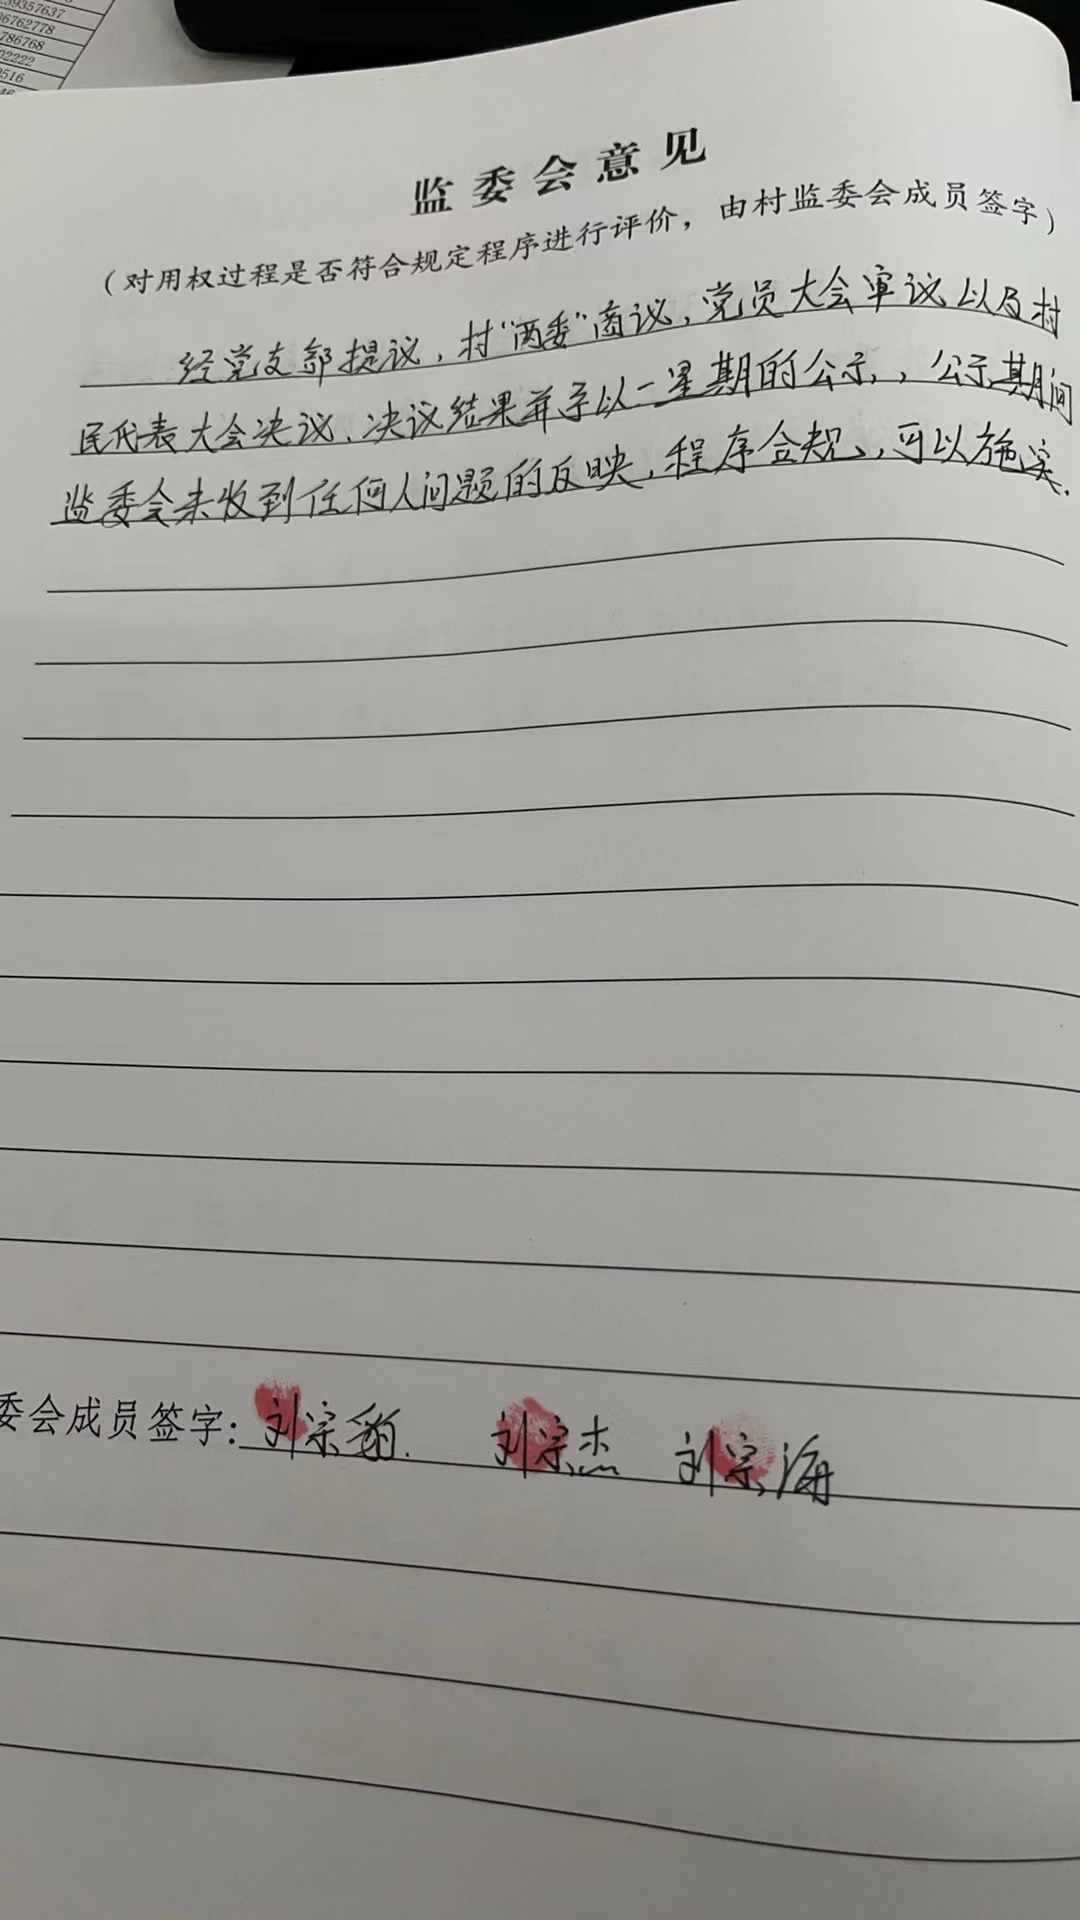 39357637
96762778
786768
02222
9516
监委会意见
（对用权过程是否符合规定程序进行评价，由村监委会成员签字）
经党支部提议，村“两委”商议，党员大会审议以及村
民代表大会决议、决议结果并予以一星期的公示，，公示期间
监委会未收到任何人问题的反映，程序合规，可以施实.
委会成员签字：刘宗豹. 刘宗杰 刘宗海